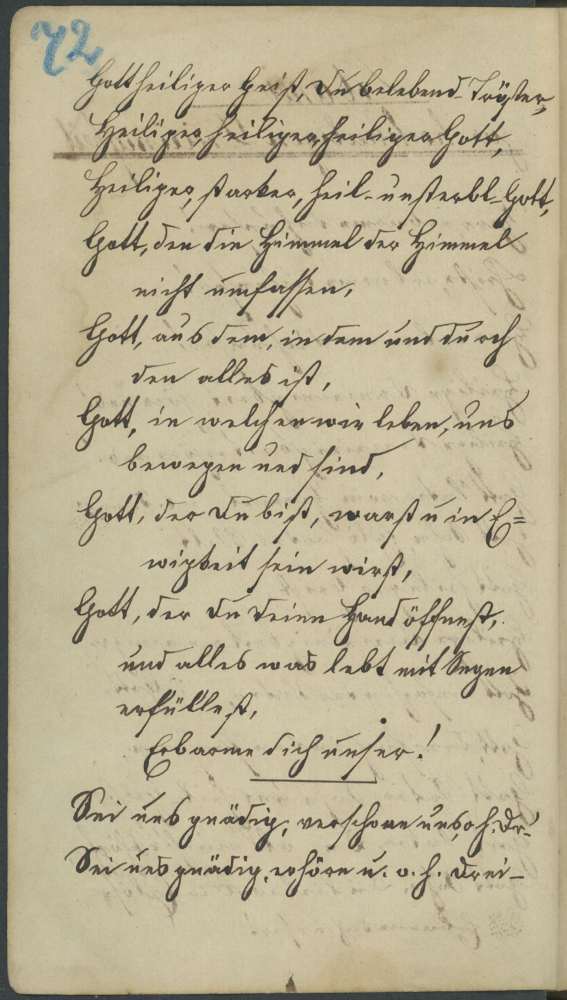 72
Gott heiliger Geist, du belebend. Tröster,
Heiliger, heiliger, heiliger Gott,
Heiliger, starker, heil. unsterbl. Gott,
Gott, den die Himmel der Himmel
nicht umfassen,
Gott, aus dem, in dem und durch
den alles ist,
Gott, in welchem wir leben, uns
bewegen und sind,
Gott, der du bist, warst u in E=
wigkeit sein wirst,
Gott, der du deine Hand öffnest,
und alles was lebt mit Segen
erfüllest,
Erbarme dich unser!
Sei uns gnädig, verschone uns, o h. Dr.
Sei uns gnädig, erhöre u. o. h. Drei-